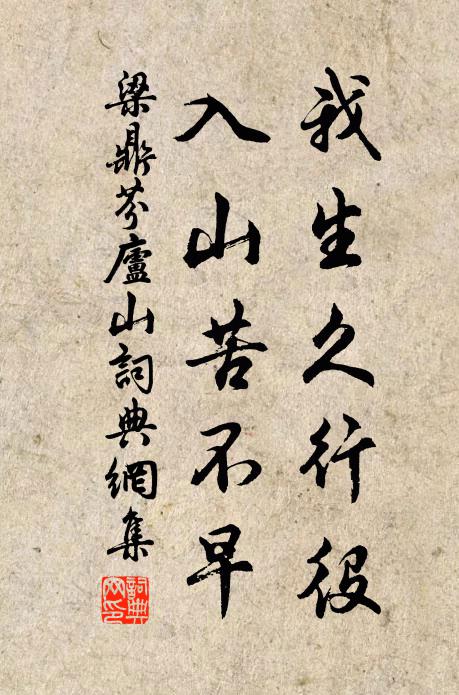 我生久行役
入山苦不早
梁鼎芬廬山詞典網集
詞典網印